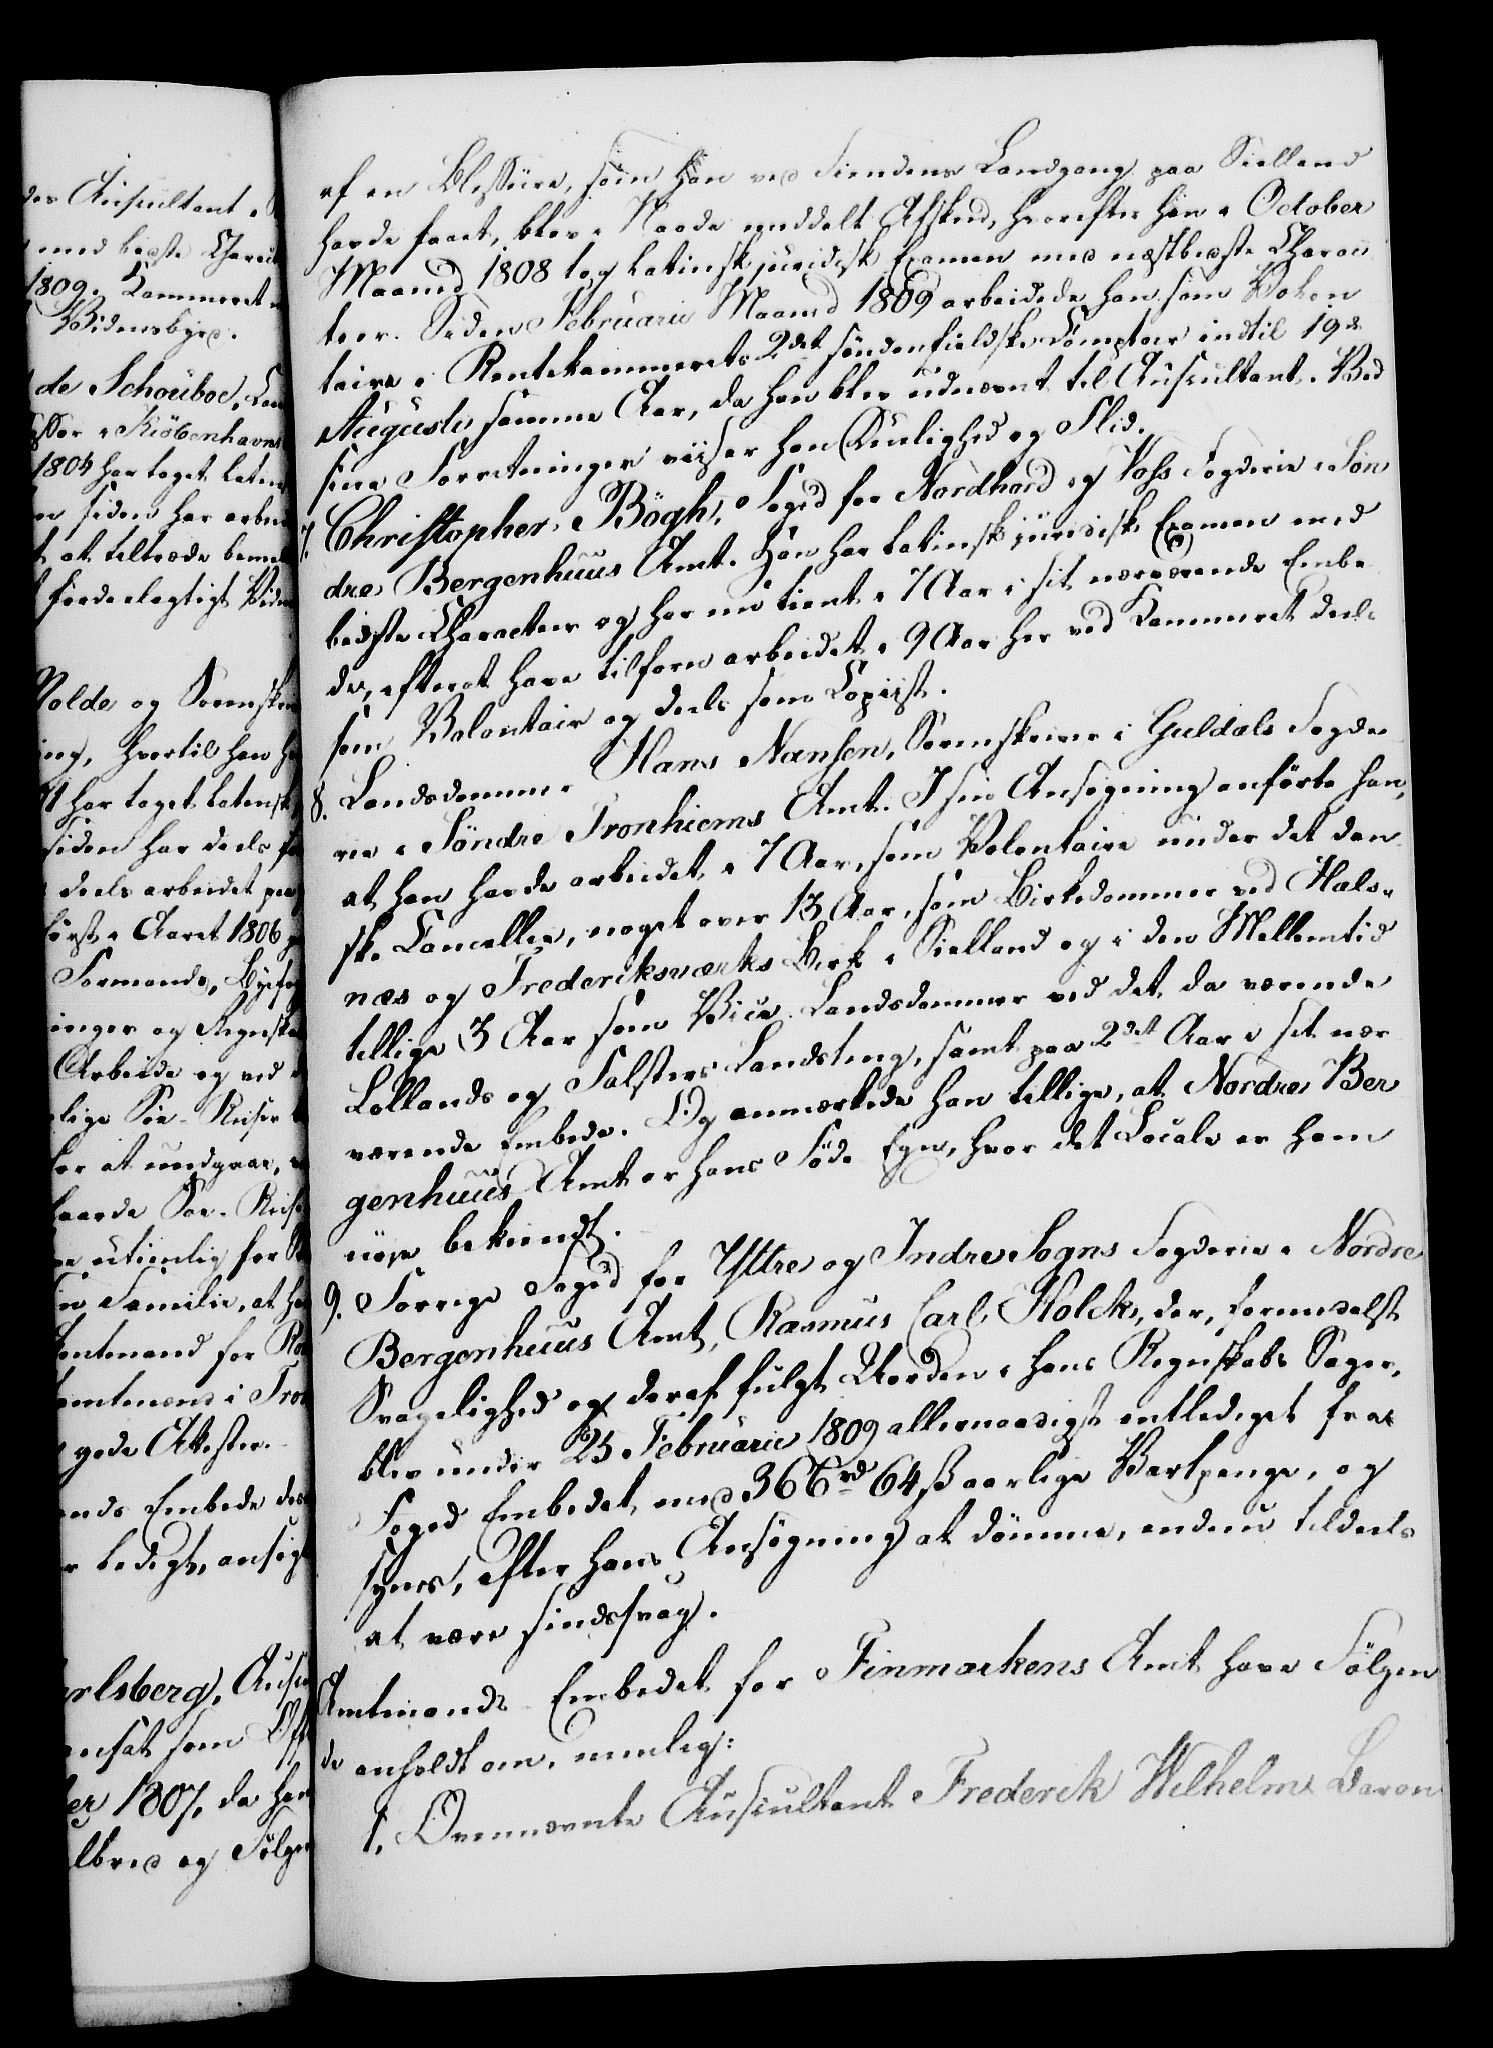 des Auscultant i
med bedste Charact
1809. Kammeret
Vidensbyrd.
de Schouboe, Can
Assessor i Kiöbenhavns
1804 har taget Latin
siden har arbei
at tiltræde benæv
fordeelagtigt Vidn
Molde og Sorenskri
ing, hvortil han ha
har taget Latinsk
siden har deels
deels arbeidet paa
först i Aaret 1806
Formands, Byefog
inger og Regnska
Arbeide og ved
lige Söe-Reiser
for at undgaae,
haarde Söe-Reise
utienlig for
Familie, at ha
Amtmand for Ro
Amtmand i Tron
gode Attester.
ands Embede des
ledigt, ansøgt
arlsberg, Auscu
ansat som Off
er 1807, da han
albred og Følge
af en Blessure, som han ved Fiendens Landgang paa Sielland
havde faaet, blev i Naade meddelt Afskeed, hvorefter han i October
Maaned 1808 tog Latinsk juridisk Examen med næstbedste Charac
teer. Siden Februarii Maaned 1809 arbeidede han som Volon
taire i Rentekammerets 2det söndenfieldske Comptoir indtil 19de
Augusti samme Aar, da han blev udnævnt til Auscultant. Ved
sine Forretninger viiser han Duelighed og Flid.
7. Christopher Bögh, Foged for Nordhord og Voss Fogderie i Sön
dre Bergenhuus Amt. Han har Latinsk juridisk Examen med
bedste Characteer og har nu tient i 7 Aar i sit nærværende Embe
de, efterat have tilforn arbeidet i 9 Aar her ved Kammeret deels
som Volontair og deels som Copiist.
8. Landsdommer Hans Nansen, Sorenskriver i Guldals Fogde
rie i Söndre Tronhiems Amt. I sin Ansögning anförte han,
at han havde arbeidet i 7 Aar, som Volontaire under det dan
ske Cancellie, noget over 13 Aar, som Birkedommer ved Hals
næs og Frederiksværks Birk i Sielland og i den Mellemtid
tillige 3 Aar som Vice-Landsdommer ved det da værende
Lollands og Falsters Landsting, samt paa 2det Aar i sit nær
værende Embede. Og anmærkede han tillige, at Nordre Ber
genhuus Amt er hans Föde Egn, hvor det Locale er ham
nöye bekiendt.
9. Forrige Foged for Yttre og Indre Sogns Fogderie i Nordre
Bergenhuus Amt, Rasmus Carl Holck, der, formedelst
Svagelighed og deraf fulgt Uorden i hans Regnskabs Sager,
blev under 25 Februarii 1809 allernaadigst entlediget fra
Foged Embedet med 366 rd 64 ß aarlige Vartpenge, og
synes, efter hans Ansögning at dömme, endnu tildeels
at være sindssvag.
Amtmands Embedet for Finmarkens Amt have Fölgen
de anholdt om, nemlig:
1, Ovennævnte Auscultant Frederik Wilhelm Baron